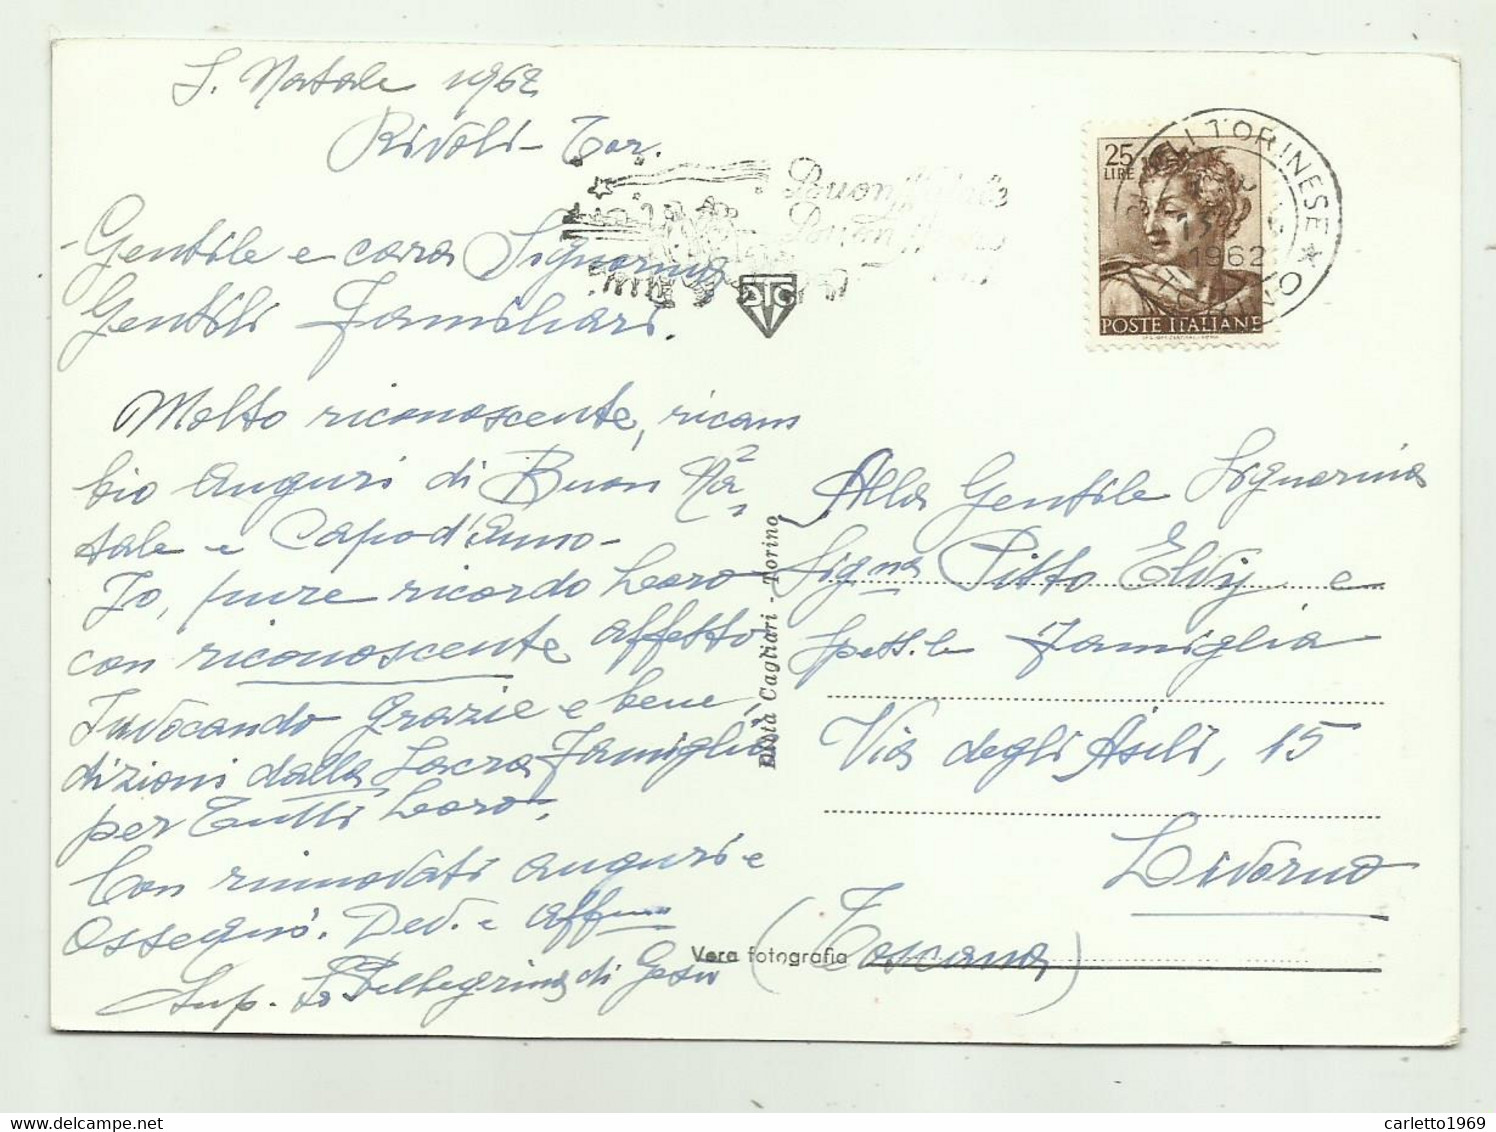 S. Natale 1962
Rivoli - Tor.
Gentile e cara Signorina
Gentili Familiari.
Molto riconoscente, ricam
bio auguri di Buon Na=
tale e Capod'anno -
Io, pure ricordo Loro
con riconoscente affetto
Invocando grazie e bene
dizioni dalla Sacra Famiglia
per Tutti Loro.
Con rinnovati auguri e
ossequi. Dev. e aff.ma
Sup. Sr Pellegrina di Gesù
Buon Natale
Buon Anno
25
LIRE
POSTE ITALIANE
TORINESE
1962
DTC
Ditta Cagliari - Torino
Vera fotografia
Alla Gentile Signorina
Sig.na Pitto Elvy e
Spett.le Famiglia
Via degli Asili, 15
Livorno
(Toscana)
carletto1969